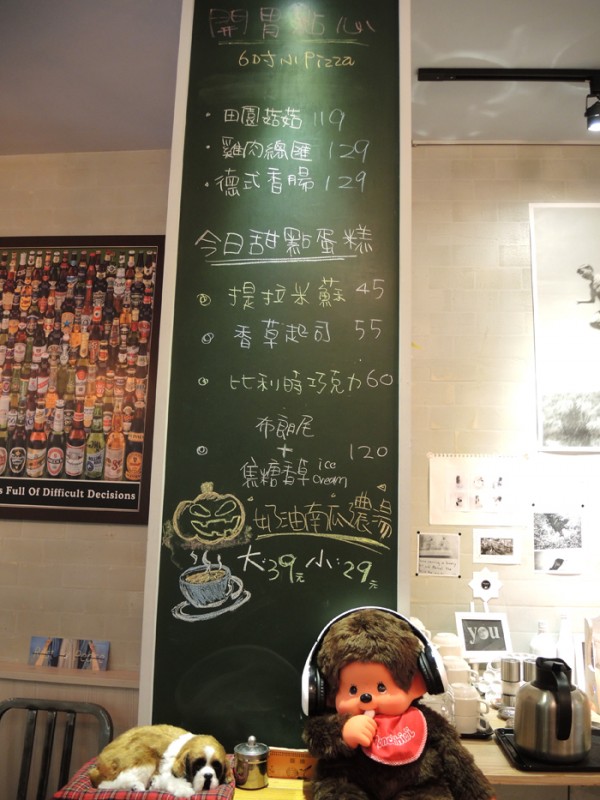 開胃點心
6吋小Pizza
・田園菇菇 119
・雞肉總匯 129
・德式香腸 129
今日甜點蛋糕
提拉米蘇 45
香草起司 55
比利時巧克力 60
布朗尼
+ 120
焦糖香草 ice cream
奶油南瓜濃湯
大:39元 小:29元
s Full Of Difficult Decisions
you